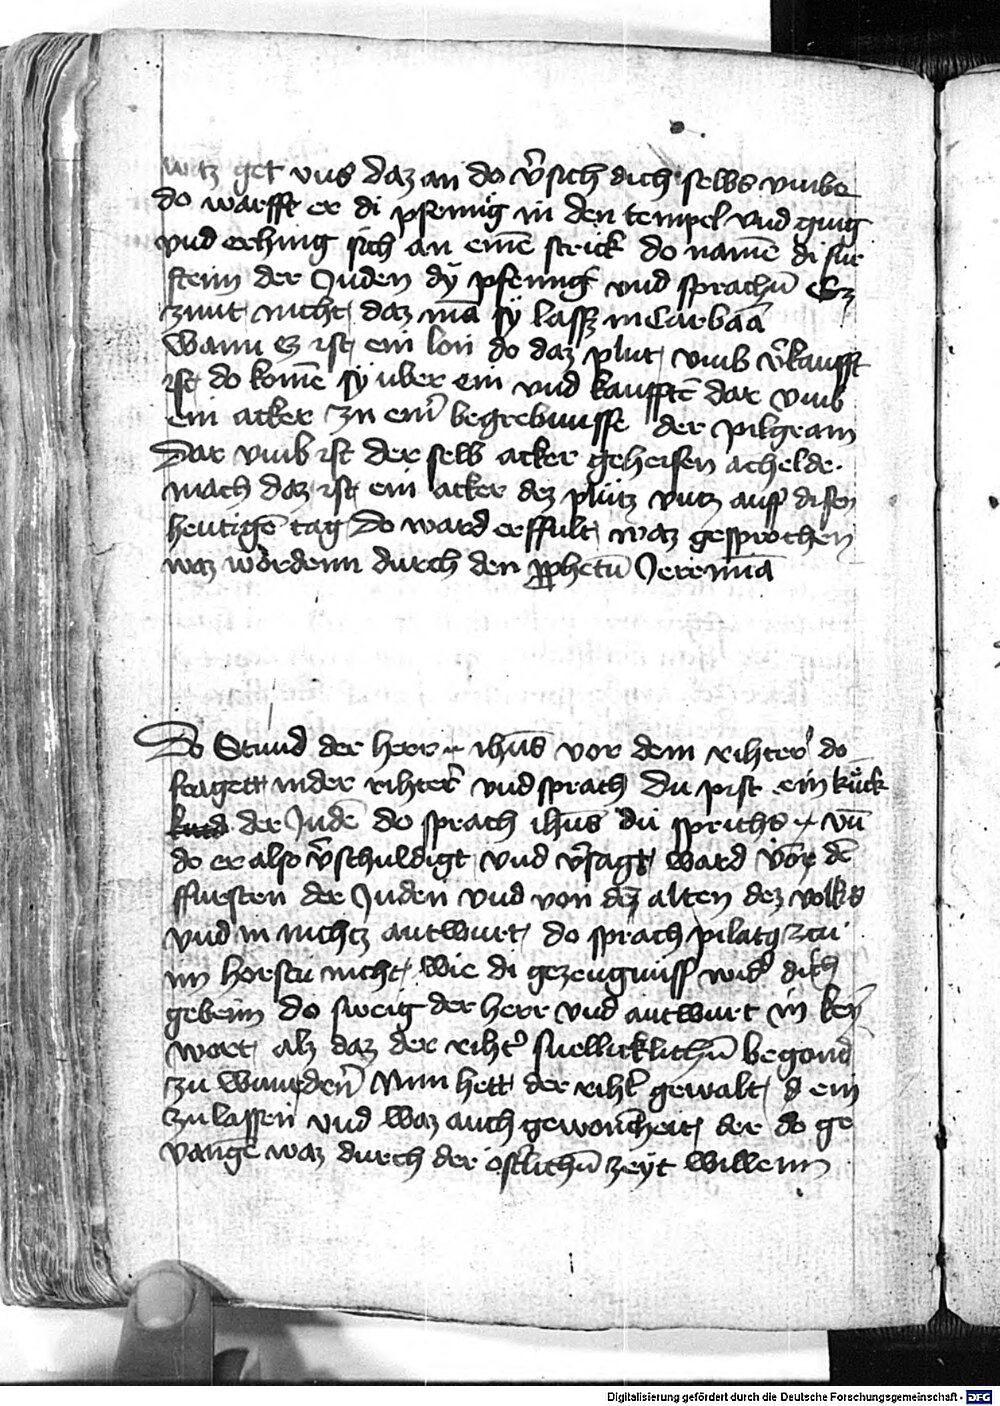 watz get vns daz an do v̄sich dich selbs vmbe
do warfft er di pfennig in den tempel vnd ging
vnd erhing sich an einē strick do namē di fur
stein der Juden dÿ pfennig vnd sprachn̄ Ez
zimt nicht daz mā sy lassz in Carbāā
Wann ez ist ein lon do daz plut vmb v̄kaufft
ist do komē sy uber ein vnd kaufftē dar vmb
ein acker zu ein̄ begrebnusse der pilgram
Dar vmb ist der selb acker geheisen achelde
mach daz ist ein acker dez plütz vntz auff disen
heutigē tag Do ward erffult waz gesprochen
waz wordenn durch den prophetn̄ Jeremiā
Do Stund der herr ihūs vor dem rihter do
fragett in der rihter vnd sprach Du pist ein kuͤck
der Judē do sprach ihūs du sprichs vn̄
do er also v̄schuldigt vnd v̄sagt ward vor dē
ffuersten der Juden vnd von dez alten dez volks
vnd in nichtz antwurt do sprach pilatꝰ zcu
im horstu nicht wie di gezeugnuss wid̓ dich
gebenn do sweig der herr vnd antwurt in keÿ
wort alz daz der riht̓ snellicklichn̄ begond
zu wundern̄ Nun hett der riht̓ gewalt d ein
zu lassen vnd waz auch gewonheit der do ge
vangē waz durch der ostlichn̄ zeyt willenn
Digitalisierung gefördert durch die Deutsche Forschungsgemeinschaft - DFG